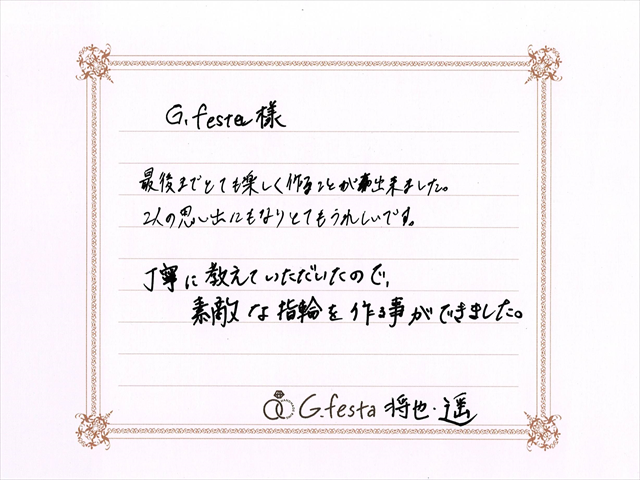 G.festa様
最後までとても楽しく作ることが出来ました。
2人の思い出にもなりとてもうれしいです。
丁寧に教えていただいたので、
素敵な指輪を作る事ができました。
G.festa 将也・遥